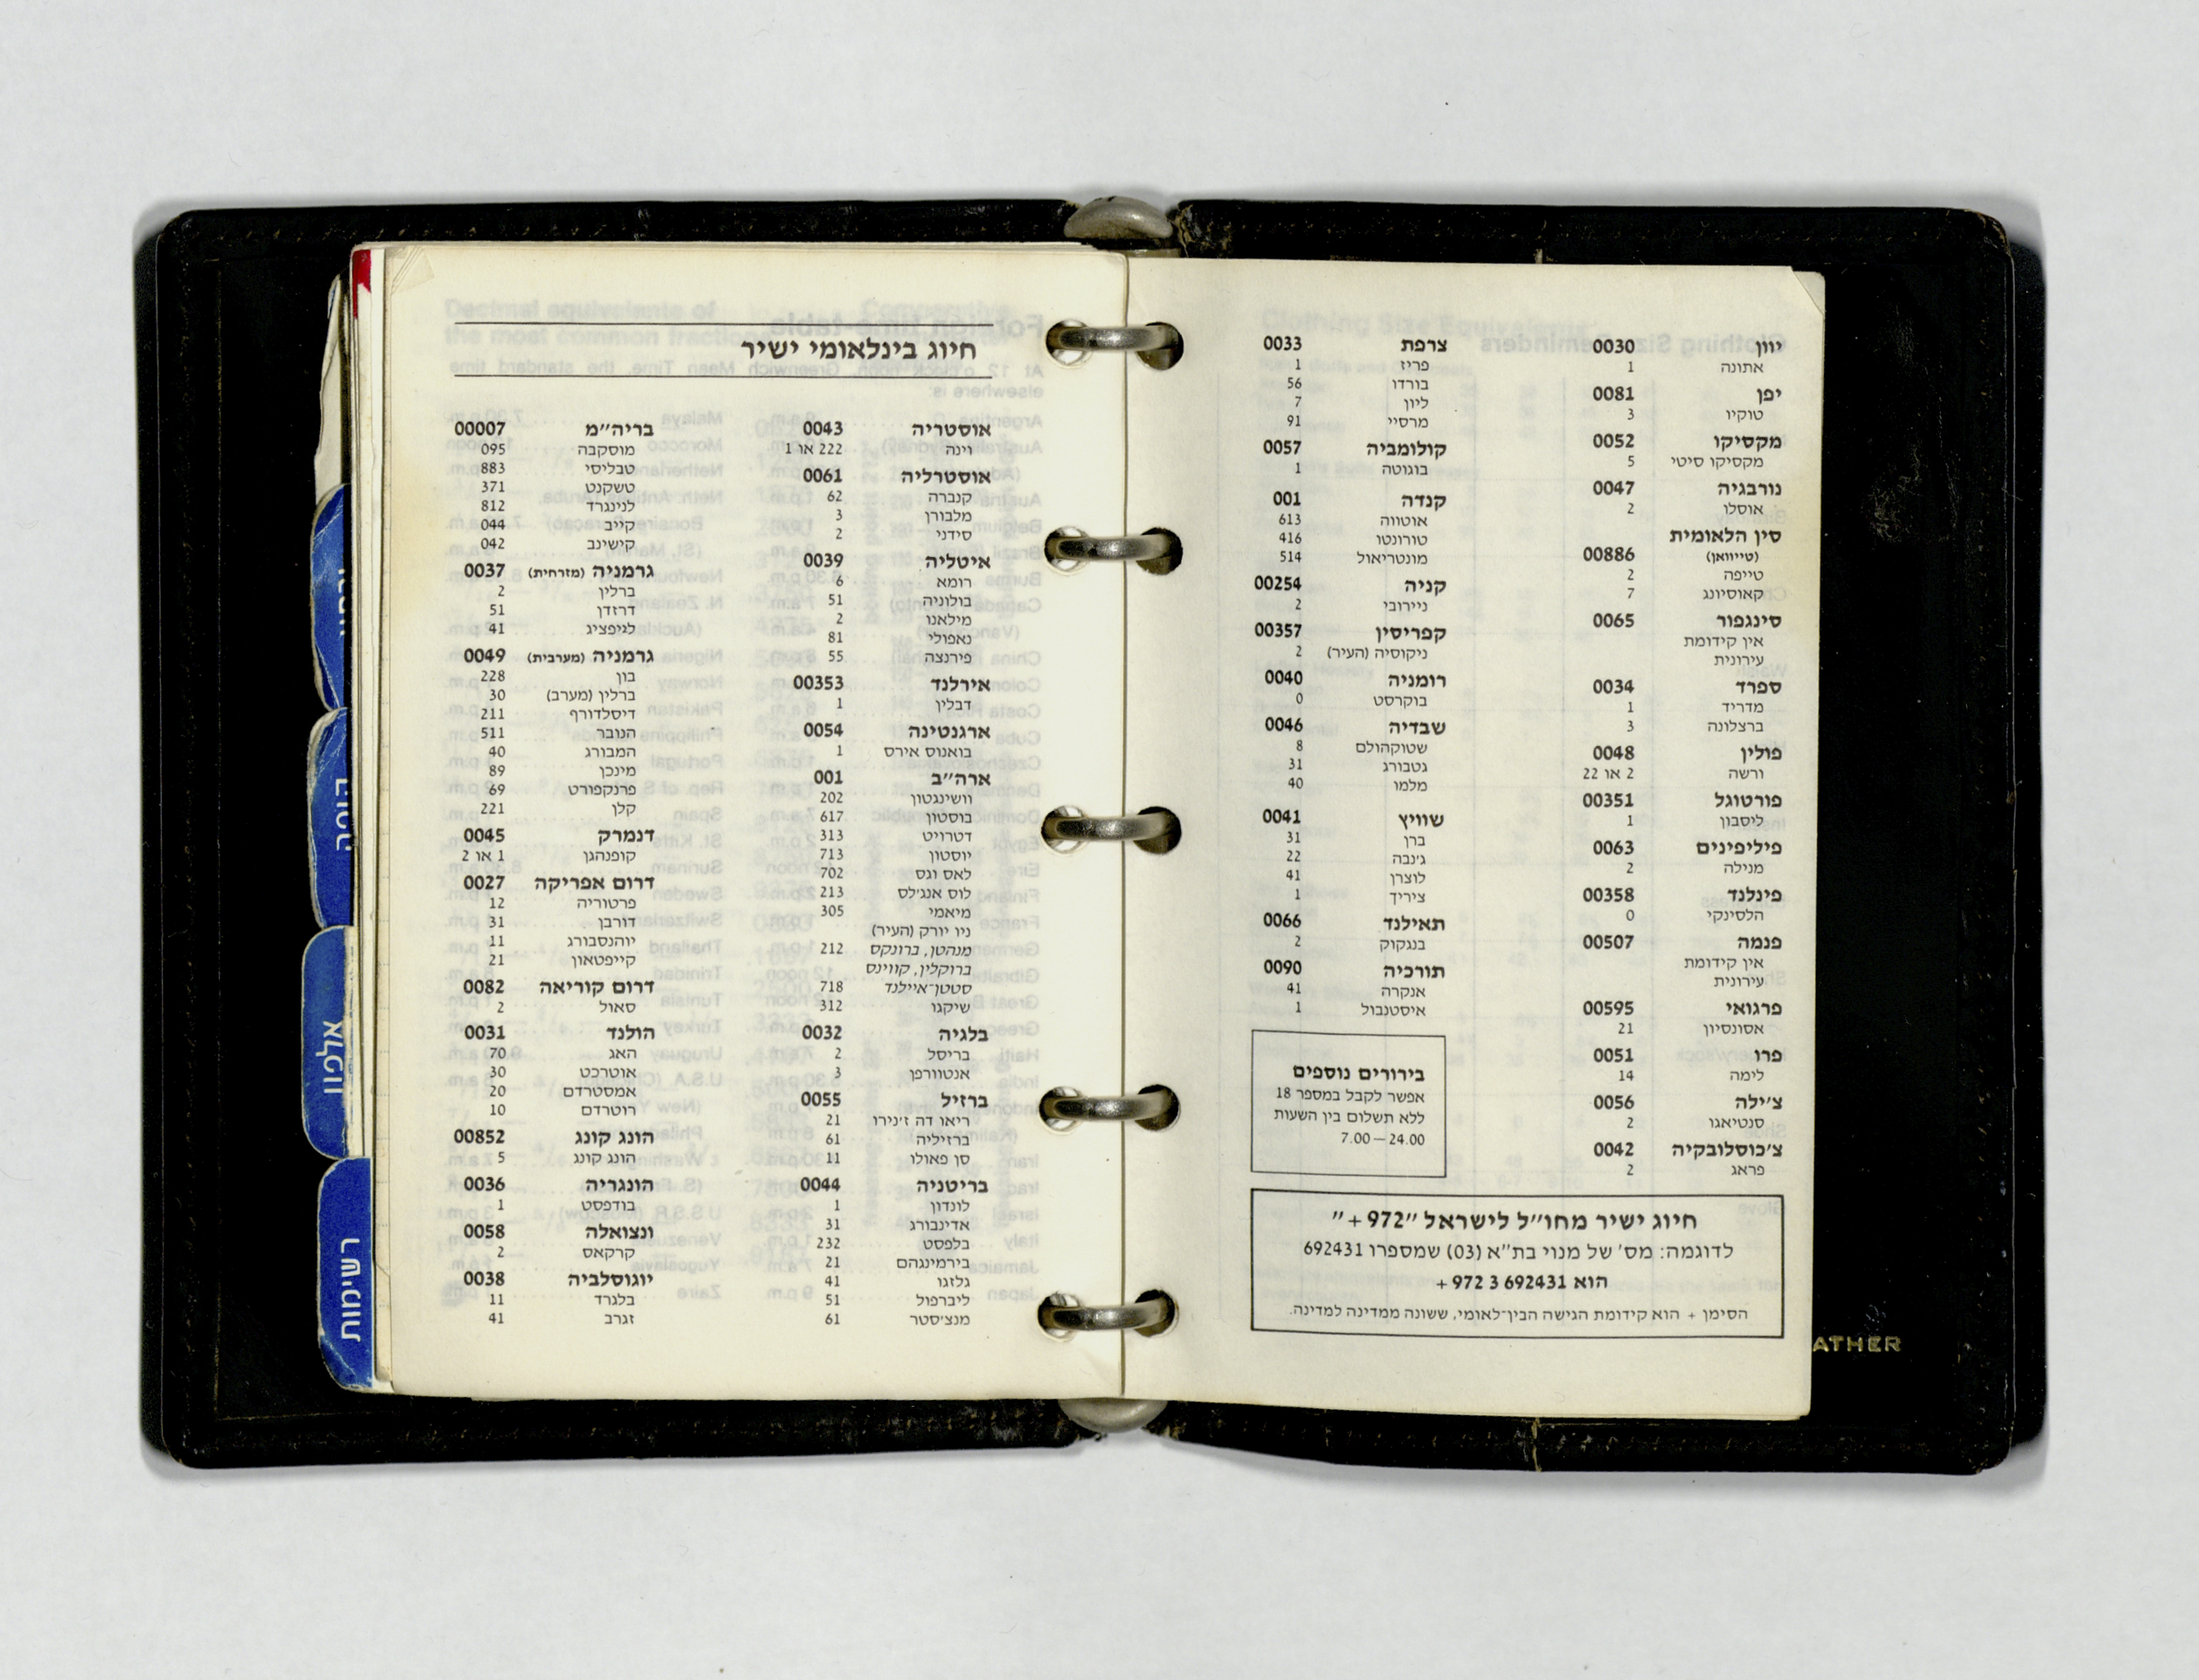 חיוג בינלאומי ישיר
אוסטריה 0043
וינה 222 או 1
אוסטרליה 0061
קנברה 62
מלבורן 3
סידני 2
איטליה 0039
רומא 6
בולוניה 51
מילאנו 2
נאפולי 81
פירנצה 55
אירלנד 00353
דבלין 1
ארגנטינה 0054
בואנוס אירס 1
ארה״ב 001
וושינגטון 202
בוסטון 617
דטרויט 313
יוסטון 713
לאס וגס 702
לוס אנג׳לס 213
מיאמי 305
ניו יורק (העיר)
מנהטן, ברונקס 212
ברוקלין, קווינס
סטטן־איילנד 718
שיקגו 312
בלגיה 0032
בריסל 2
אנטוורפן 3
ברזיל 0055
ריאו דה ז׳נירו 21
ברזיליה 61
סן פאולו 11
בריטניה 0044
לונדון 1
אדינבורג 31
בלפסט 232
בירמינגהם 21
גלזגו 41
ליברפול 51
מנצ׳סטר 61
בריה״מ 00007
מוסקבה 095
טבליסי 883
טשקנט 371
לנינגרד 812
קייב 044
קישינב 042
גרמניה (מזרחית) 0037
ברלין 2
דרזדן 51
לייפציג 41
גרמניה (מערבית) 0049
בון 228
ברלין (מערב) 30
דיסלדורף 211
הנובר 511
המבורג 40
מינכן 89
פרנקפורט 69
קלן 221
דנמרק 0045
קופנהגן 1 או 2
דרום אפריקה 0027
פרטוריה 12
דורבן 31
יוהנסבורג 11
קייפטאון 21
דרום קוריאה 0082
סאול 2
הולנד 0031
האג 70
אוטרכט 30
אמסטרדם 20
רוטרדם 10
הונג קונג 00852
הונג קונג 5
הונגריה 0036
בודפסט 1
ונצואלה 0058
קרקאס 2
יוגוסלביה 0038
בלגרד 11
זגרב 41
יוון 0030
אתונה 1
יפן 0081
טוקיו 3
מקסיקו 0052
מקסיקו סיטי 5
נורבגיה 0047
אוסלו 2
סין הלאומית
(טייוואן) 00886
טייפה 2
קאוסיונג 7
סינגפור 0065
אין קידומת
עירונית
ספרד 0034
מדריד 1
ברצלונה 3
פולין 0048
ורשה 2 או 22
פורטוגל 00351
ליסבון 1
פיליפינים 0063
מנילה 2
פינלנד 00358
הלסינקי 0
פנמה 00507
אין קידומת
עירונית
פרגואי 00595
אסונסיון 21
פרו 0051
לימה 14
צ׳ילה 0056
סנטיאגו 2
צ׳כוסלובקיה 0042
פראג 2
צרפת 0033
פריז 1
בורדו 56
ליון 7
מרסיי 91
קולומביה 0057
בוגוטה 1
קנדה 001
אוטווה 613
טורונטו 416
מונטריאול 514
קניה 00254
ניירובי 2
קפריסין 00357
ניקוסיה (העיר) 2
רומניה 0040
בוקרסט 0
שבדיה 0046
שטוקהולם 8
גטבורג 31
מלמו 40
שוויץ 0041
ברן 31
ג׳נבה 22
לוצרן 41
ציריך 1
תאילנד 0066
בנגקוק 2
תורכיה 0090
אנקרה 41
איסטנבול 1
בירורים נוספים
אפשר לקבל במספר 18
ללא תשלום בין השעות
7.00—24.00
חיוג ישיר מחו״ל לישראל ״972+״
לדוגמה: מס׳ של מנוי בת״א (03) שמספרו 692431
הוא 692431 3 972 +
הסימן + הוא קידומת הגישה הבין־לאומי, ששונה ממדינה למדינה.
אלפון
רשימות
ATHER